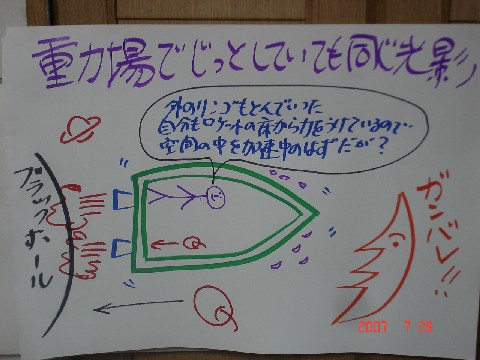 重力場でじっとしていても同じ光景
外のリンゴもとんでいった
自分もロケットの床から力をうけているので
空間の中を加速中のはずだが?
ブラックホール
ガンバレ!!
2007 7 29